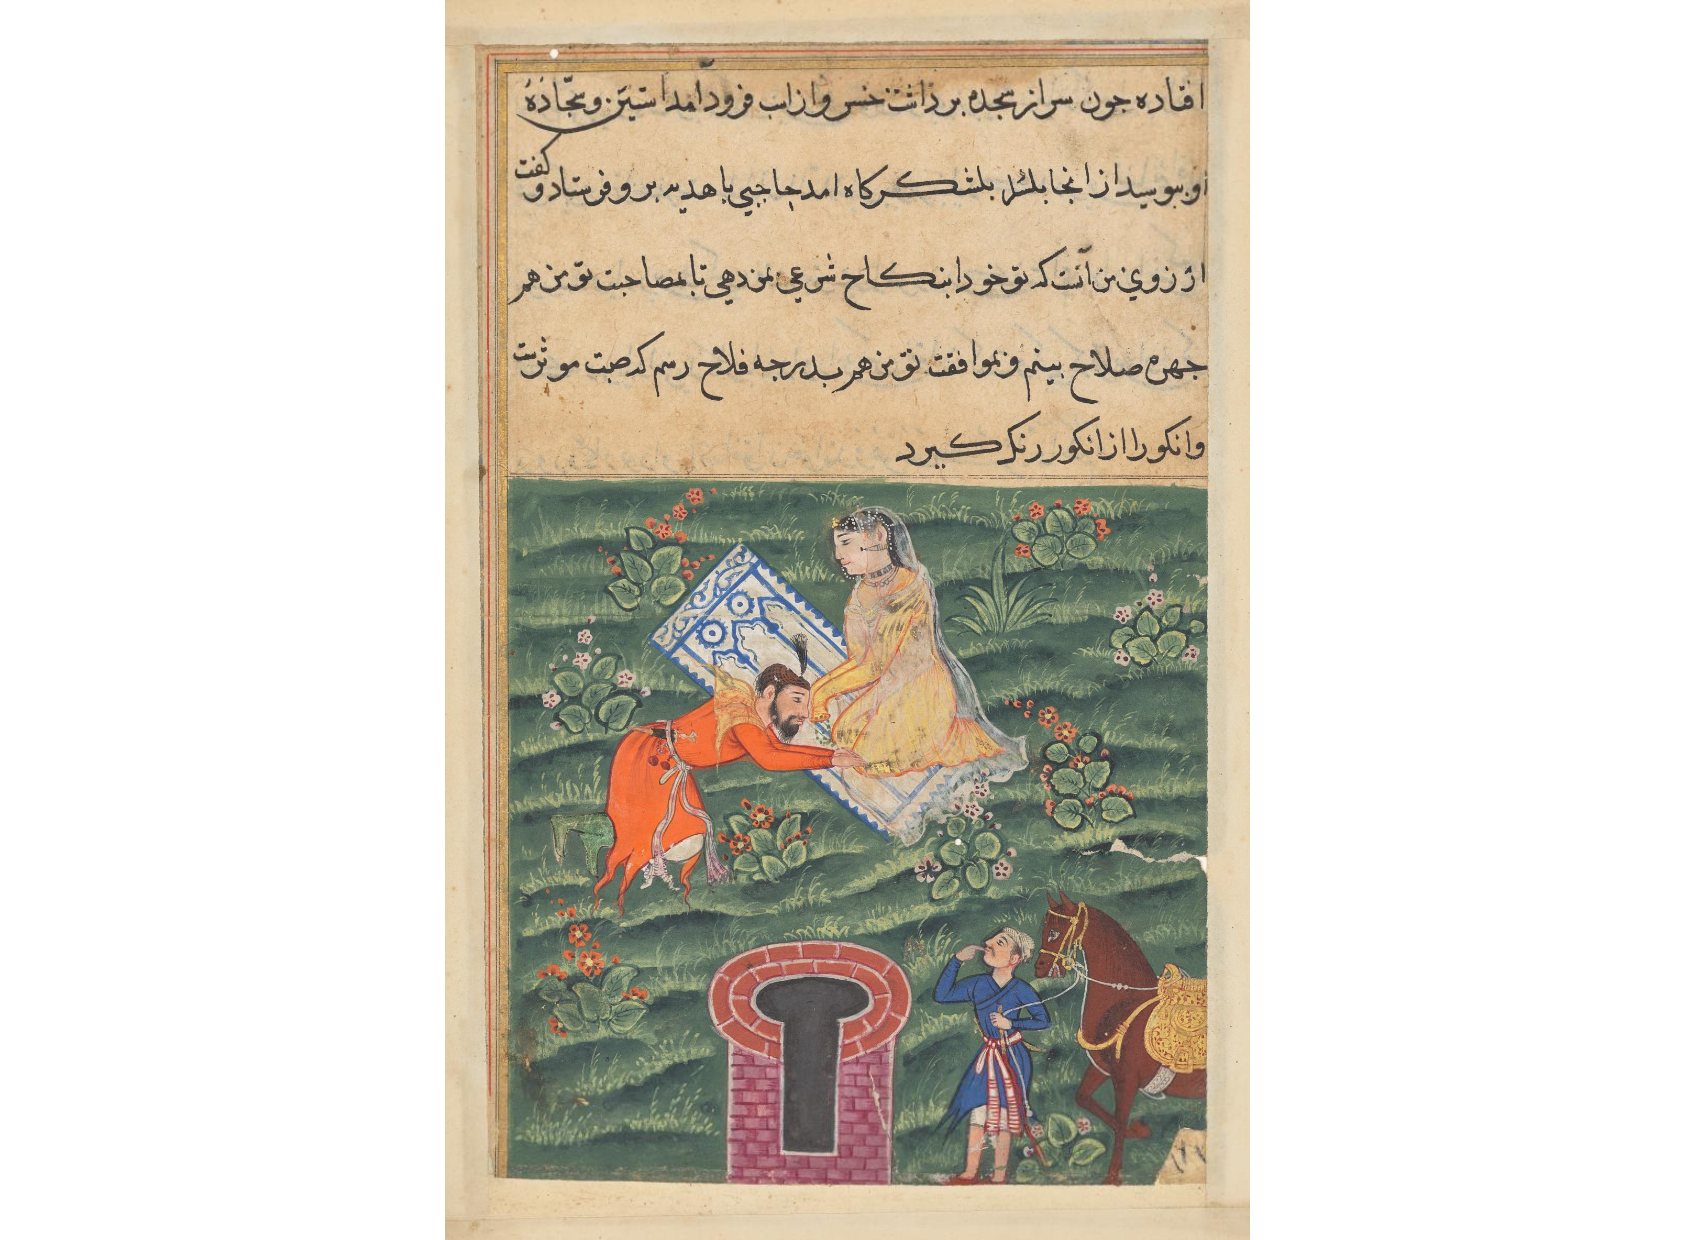 افتاده جون سر از سجده برداشت خسرو از اسب فرود آمد استین و سجّادهٔ
او ببوسید از انجا بلشکرکاه امد حاجبي با هدیه بر و فرستاد و کفت
از روي من آنست که تو خود را بنکاح شرعي بمن دهي تا بمصاحبت تو من هم
جهره صلاح بینم و بموافقت تو من هم بدرجه فلاح رسم که صحبت موثرست
وانکور را از انکور رنک کیرد